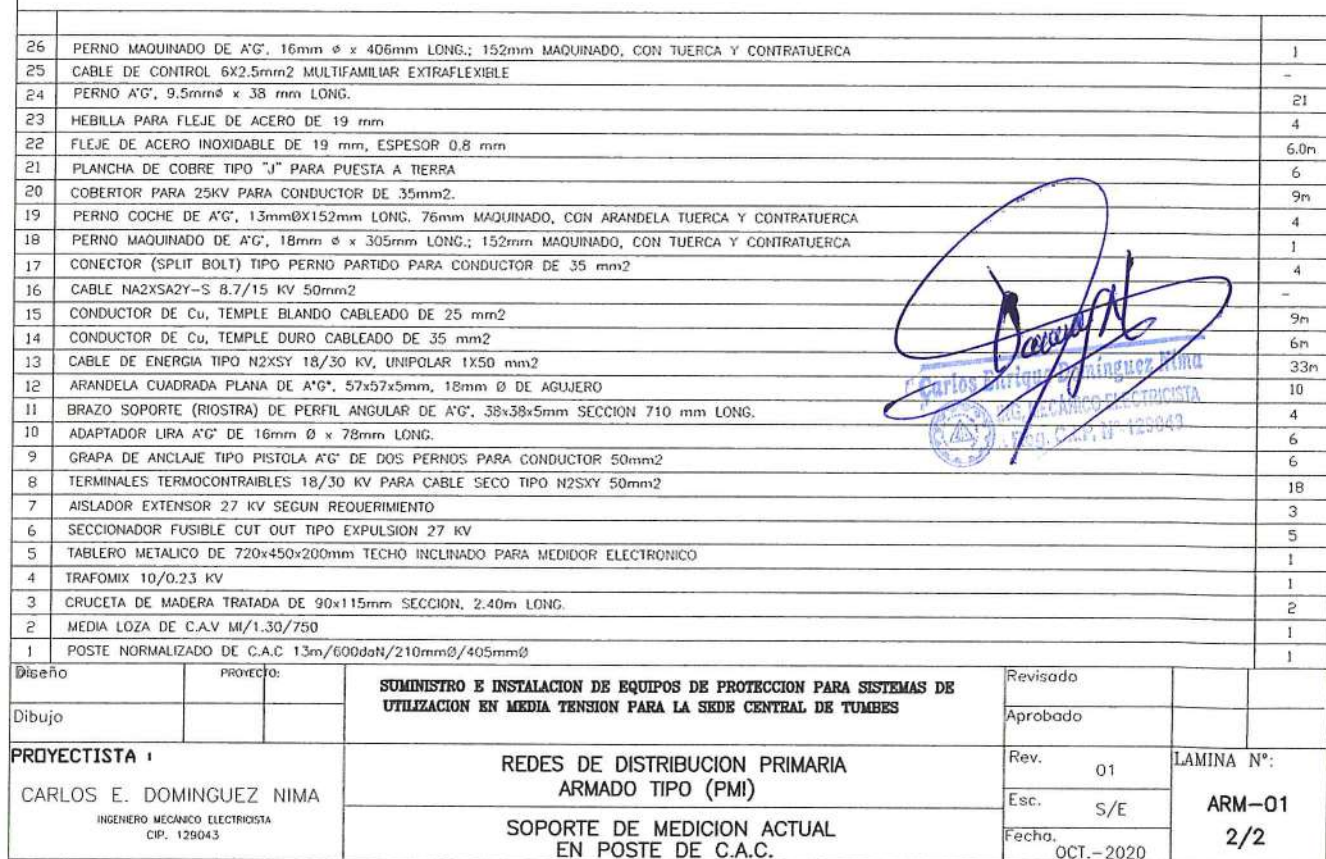 26 PERNO MAQUINADO DE A'G', 16mm ø x 406mm LONG.; 152mm MAQUINADO, CON TUERCA Y CONTRATUERCA 1
25 CABLE DE CONTROL 6X2.5mm2 MULTIFAMILIAR EXTRAFLEXIBLE -
24 PERNO A'G', 9.5mmø x 38 mm LONG. 21
23 HEBILLA PARA FLEJE DE ACERO DE 19 mm 4
22 FLEJE DE ACERO INOXIDABLE DE 19 mm, ESPESOR 0.8 mm 6.0m
21 PLANCHA DE COBRE TIPO "J" PARA PUESTA A TIERRA 6
20 COBERTOR PARA 25KV PARA CONDUCTOR DE 35mm2. 9m
19 PERNO COCHE DE A'G', 13mmØX152mm LONG. 76mm MAQUINADO, CON ARANDELA TUERCA Y CONTRATUERCA 4
18 PERNO MAQUINADO DE A'G', 18mm ø x 305mm LONG.; 152mm MAQUINADO, CON TUERCA Y CONTRATUERCA 1
17 CONECTOR (SPLIT BOLT) TIPO PERNO PARTIDO PARA CONDUCTOR DE 35 mm2 4
16 CABLE NA2XSA2Y-S 8.7/15 KV 50mm2 -
15 CONDUCTOR DE Cu, TEMPLE BLANDO CABLEADO DE 25 mm2 9m
14 CONDUCTOR DE Cu, TEMPLE DURO CABLEADO DE 35 mm2 6m
13 CABLE DE ENERGIA TIPO N2XSY 18/30 KV, UNIPOLAR 1X50 mm2 33m
12 ARANDELA CUADRADA PLANA DE A°G°, 57x57x5mm, 18mm Ø DE AGUJERO 10
11 BRAZO SOPORTE (RIOSTRA) DE PERFIL ANGULAR DE A'G', 38x38x5mm SECCION 710 mm LONG. 4
10 ADAPTADOR LIRA A'G' DE 16mm Ø x 78mm LONG. 6
9 GRAPA DE ANCLAJE TIPO PISTOLA A'G' DE DOS PERNOS PARA CONDUCTOR 50mm2 6
8 TERMINALES TERMOCONTRAIBLES 18/30 KV PARA CABLE SECO TIPO N2SXY 50mm2 18
7 AISLADOR EXTENSOR 27 KV SEGUN REQUERIMIENTO 3
6 SECCIONADOR FUSIBLE CUT OUT TIPO EXPULSION 27 KV 5
5 TABLERO METALICO DE 720x450x200mm TECHO INCLINADO PARA MEDIDOR ELECTRONICO 1
4 TRAFOMIX 10/0.23 KV 1
3 CRUCETA DE MADERA TRATADA DE 90x115mm SECCION, 2.40m LONG. 2
2 MEDIA LOZA DE C.A.V MI/1.30/750 1
1 POSTE NORMALIZADO DE C.A.C 13m/600daN/210mmØ/405mmØ 1
Carlos Enrique Domínguez Nima
ING. MECÁNICO ELECTRICISTA
Reg. C.I.P. N° 129043
Diseño
PROYECTO:
Dibujo
SUMINISTRO E INSTALACION DE EQUIPOS DE PROTECCION PARA SISTEMAS DE
UTILIZACION EN MEDIA TENSION PARA LA SEDE CENTRAL DE TUMBES
Revisado
Aprobado
PROYECTISTA :
CARLOS E. DOMINGUEZ NIMA
INGENIERO MECÁNICO ELECTRICISTA
CIP. 129043
REDES DE DISTRIBUCION PRIMARIA
ARMADO TIPO (PMI)
SOPORTE DE MEDICION ACTUAL
EN POSTE DE C.A.C.
Rev. 01
Esc. S/E
Fecha. OCT.-2020
LAMINA N°:
ARM-01
2/2